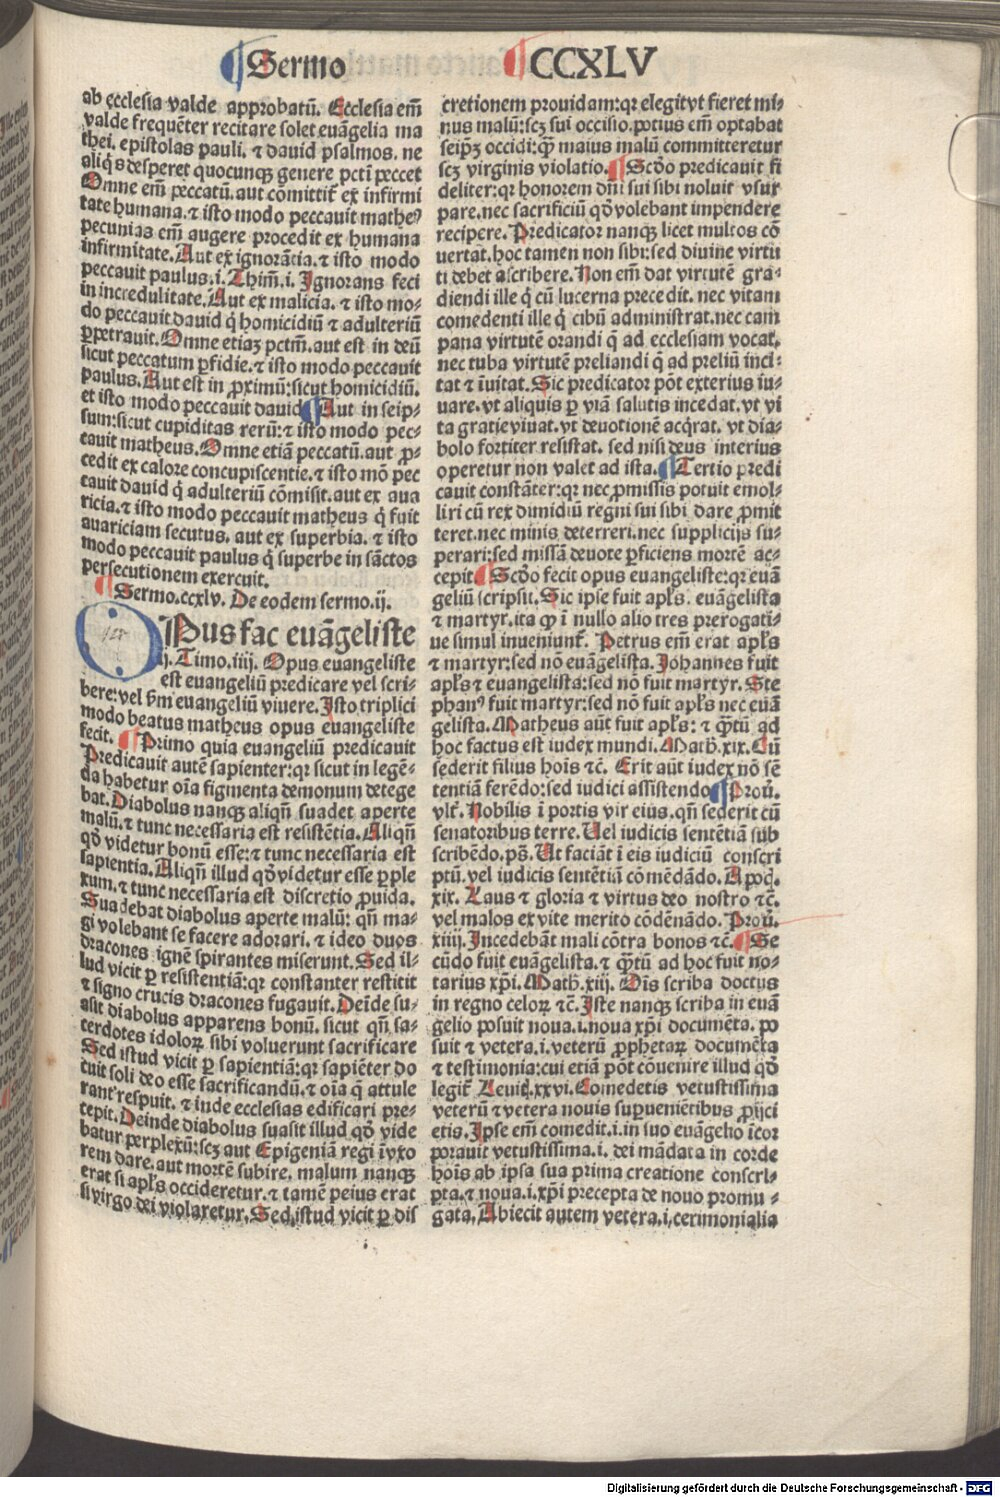 ¶Sermo ¶CCXLV
ab ecclesia valde approbatū. Ecclesia em̄
valde frequēter recitare solet euāgelia ma
thei. epistolas pauli. ⁊ dauid psalmos. ne
aliq̇s desperet quocunqꝫ genere pctī peccet
Omne em̄ peccatū. aut cōmittit᷑ ex infirmi
tate humana. ⁊ isto modo peccauit matheꝰ
pecunias em̄ augere procedit ex humana
infirmitate. Aut ex ignorātia. ⁊ isto modo
peccauit paulus. i. Thim̄. i. Ignorans feci
in incredulitate. Aut ex malicia. ⁊ isto mo⸗
do peccauit dauid q̇ homicidiū ⁊ adulteriū
ꝑpetrauit. Omne etiaꝫ pctm̄. aut est in deū
sicut peccatum ꝑfidie. ⁊ isto modo peccauit
paulus. Aut est in ꝓximū: sicut homicidiū.
et isto modo peccauit dauid ¶Aut in seip⸗
sum: sicut cupiditas rerū: ⁊ isto modo pec⸗
cauit matheus. Omne etiā peccatū. aut ꝓ⸗
cedit ex calore concupiscentie. ⁊ isto mō pec
cauit dauid q̇ adulteriū cōmisit. aut ex aua
ricia. ⁊ isto modo peccauit matheus q̇ fuit
auariciam secutus. aut ex superbia. ⁊ isto
modo peccauit paulus q̇ superbe in sāctos
persecutionem exercuit.
¶Sermo. ccxlv. De eodem sermo. ij.
OPus fac euāgeliste
ij. Timo. iiij. Opus euangeliste
est euangeliū predicare vel scri⸗
bere: vel ẜm euangeliū viuere. Isto triplici
modo beatus matheus opus euangeliste
fecit. ¶Primo quia euangeliū predicauit
Predicauit autē sapienter: qꝛ sicut in legē⸗
da habetur oīa figmenta demonum detege
bat. Diabolus nanqꝫ aliqn̄ suadet aperte
malū. ⁊ tunc necessaria est resistētia. Aliqn̄
qd̓ videtur bonū esse: ⁊ tunc necessaria est
sapientia. Aliqn̄ illud qd̓ videtur esse ꝑple
xum. ⁊ tunc necessaria est discretio ꝓuida.
Suadebat diabolus aperte malū: qn̄ ma⸗
gi volebant se facere adorari. ⁊ ideo duos
dracones ignē spirantes miserunt. Sed il⸗
lud vicit ꝑ resistentiā: qꝛ constanter restitit
⁊ signo crucis dracones fugauit. Deīde su⸗
asit diabolus apparens bonū. sicut qn̄ sa⸗
cerdotes idoloꝝ sibi voluerunt sacrificare
Sed istud vicit ꝑ sapientiā: qꝛ sapiēter do
cuit soli deo esse sacrificandū. ⁊ oīa q̄ attule
rant respuit. ⁊ inde ecclesias edificari pre⸗
cepit. Deinde diabolus suasit illud qd̓ vide
batur perplexū: scꝫ aut Epigeniā regi īvxo
rem dare. aut mortē subire. malum nanqꝫ
erat si apl̄s occideretur. ⁊ tamē peius erat
si virgo dei violaretur. Sed istud vicit ꝑ dis
cretionem prouidam: qꝛ elegit vt fieret mi⸗
nus malū: scꝫ sui occisio. potius em̄ optabat
seipꝫ occidi: q̄ꝫ maius malū committeretur
scꝫ virginis violatio. ¶Scd̓o predicauit fi
deliter: qꝛ honorem dn̄i sui sibi noluit vsur
pare. nec sacrificiū qd̓ volebant impendere
recipere. Predicator nanqꝫ licet multos cō
uertat. hoc tamen non sibi: sed diuine virtu
ti debet ascribere. Non em̄ dat virtutē gra⸗
diendi ille q̇ cū lucerna precedit. nec vitam
comedenti ille q̇ cibū administrat. nec cam
pana virtutē orandi q̄ ad ecclesiam vocat.
nec tuba virtutē preliandi q̄ ad preliū inci⸗
tat ⁊ īuitat. Sic predicator pōt exterius iu⸗
uare. vt aliquis ꝑ viā salutis incedat. vt vi
ta gratie viuat. vt deuotionē acq̇rat. vt dia⸗
bolo fortiter resistat. sed nisi deus interius
operetur non valet ad ista. ¶Tertio predi
cauit constāter: qꝛ nec ꝓmissis potuit emol⸗
liri cū rex dimidiū regni sui sibi dare ꝓmit
teret. nec minis deterreri. nec supplicijs su⸗
perari: sed missā deuote ꝑficiens mortē ac⸗
cepit. ¶Scd̓o fecit opus euangeliste: qꝛ euā
geliū scripsit. Sic ipse fuit apl̄s. euāgelista
⁊ martyr. ita ꝙ ī nullo alio tres prerogati⸗
ue simul inueniunt᷑. Petrus em̄ erat apl̄s
⁊ martyr: sed nō euāgelista. Johannes fuit
apl̄s ⁊ euangelista: sed nō fuit martyr. Ste
phanꝰ fuit martyr: sed nō fuit apl̄s nec euā
gelista. Matheus aūt fuit apl̄s: ⁊ q̄ꝫtū ad
hoc factus est iudex mundi. Math̓. xix. Cū
sederit filius hoīs ⁊c̄. Erit aūt iudex nō sē
tentiā ferēdo: sed iudici assistendo ¶Prou̓.
vlt̓. Nobilis ī portis vir eius. qn̄ sederit cū
senatoribus terre. Uel iudicis sentētiā sub
scribēdo. ps̄. Ut faciāt ī eis iudiciū conscri
ptū. vel iudicis sentētiā cōmēdādo. Apoc̓.
xix. Laus ⁊ gloria ⁊ virtus deo nostro ⁊c̄.
vel malos ex vite merito cōdēnādo. Prou̓.
xiiij. Incedebāt mali cōtra bonos ⁊c̄. ¶Se
cūdo fuit euāgelista. ⁊ q̄ꝫtū ad hoc fuit no⸗
tarius xp̄i. Math̓. xiij. Oīs scriba doctus
in regno celoꝝ ⁊c̄. Iste nanqꝫ scriba in euā
gelio posuit noua. i. noua xp̄i documēta. po
suit ⁊ vetera. i. veterū ꝓphetaꝝ documēta
⁊ testimonia: cui etiā pōt cōuenire illud qd̓
legit᷑ Leuit̓. xxvi. Comedetis vetustissima
veterū ⁊ vetera nouis suꝑueniētibus ꝓijci
etis. Ipse em̄ comedit. i. in suo euāgelio īcor
porauit vetustissima. i. dei mādata in corde
hoīs ab ipsa sua prima creatione conscri⸗
pta. ⁊ noua. i. xp̄i precepta de nouo promu⸗
gata. Abiecit autem vetera. i. cerimonialia
Digitalisierung gefördert durch die Deutsche Forschungsgemeinschaft - DFG